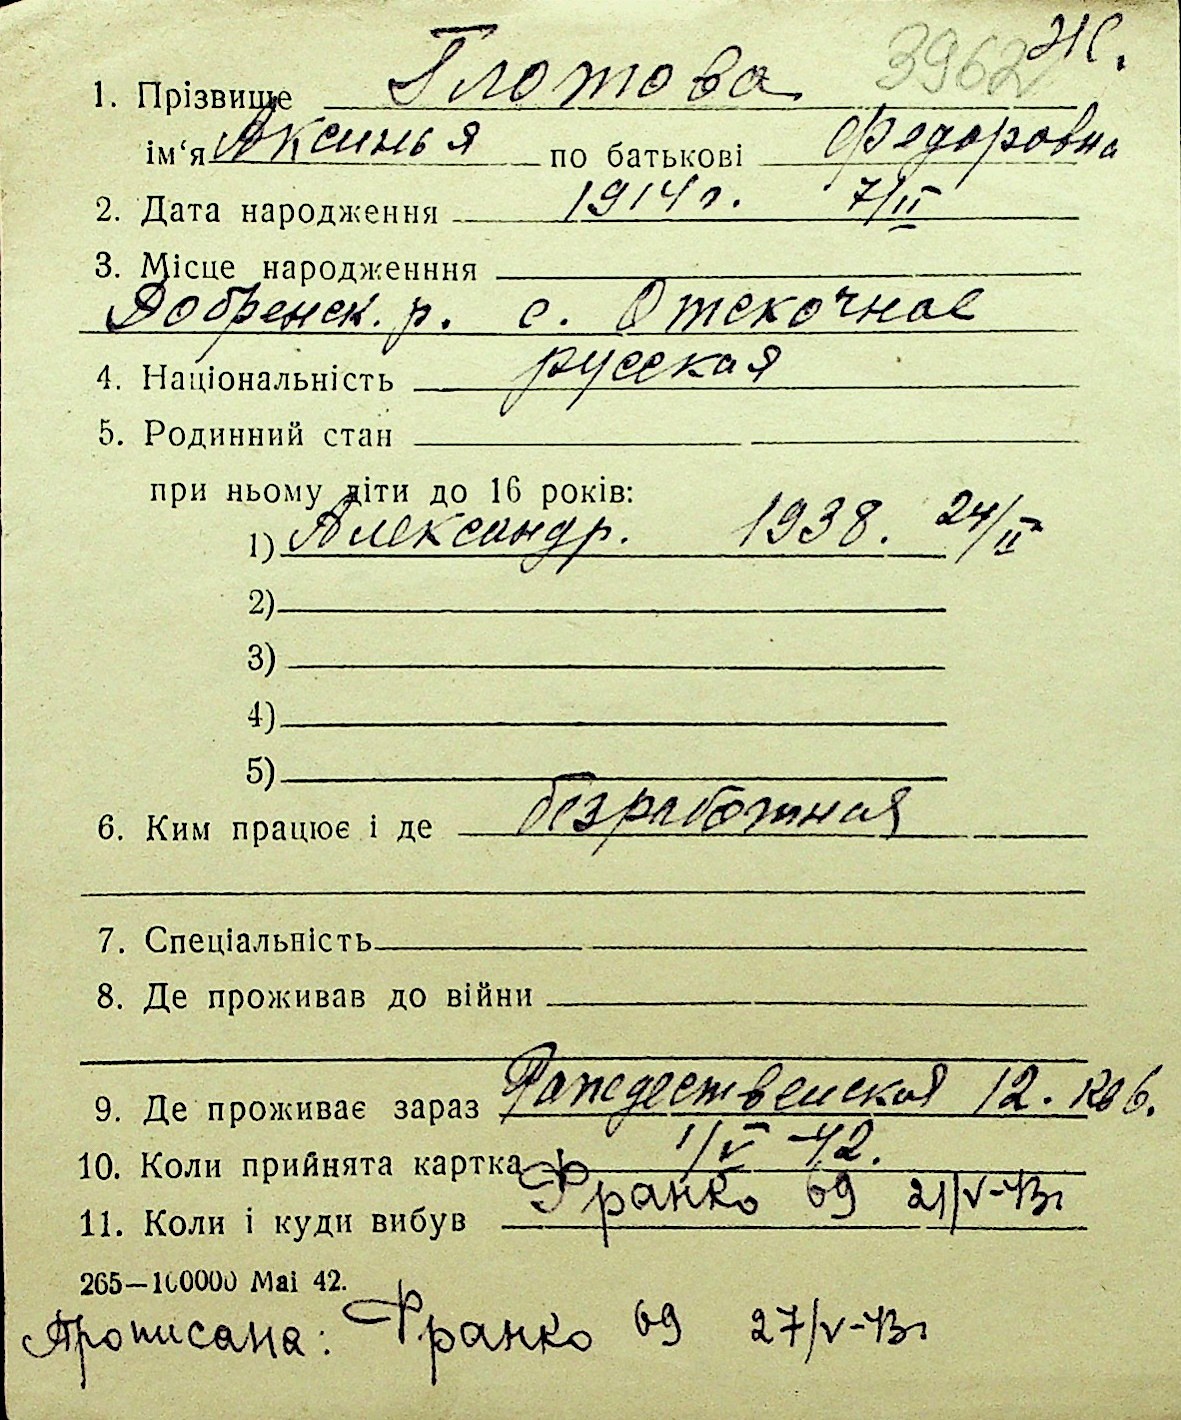 3962 Ж.
1. Прізвище Глотова
ім'я Аксинья по батькові Федоровна
2. Дата народження 1914 г. 7/II
3. Місце народженння
Добренск. р. с. Отскочное
4. Національність русская
5. Родинний стан
при ньому діти до 16 років:
1) Александр. 1938. 24/II
2)
3)
4)
5)
6. Ким працює і де безработная
7. Спеціальність
8. Де проживав до війни
9. Де проживає зараз Рождественская 12. кв 6.
10. Коли прийнята картка 1/V-42.
11. Коли і куди вибув Франко 69 21/V-43г
265—100000 Маі 42.
Прописана: Франко 69 27/V-43г